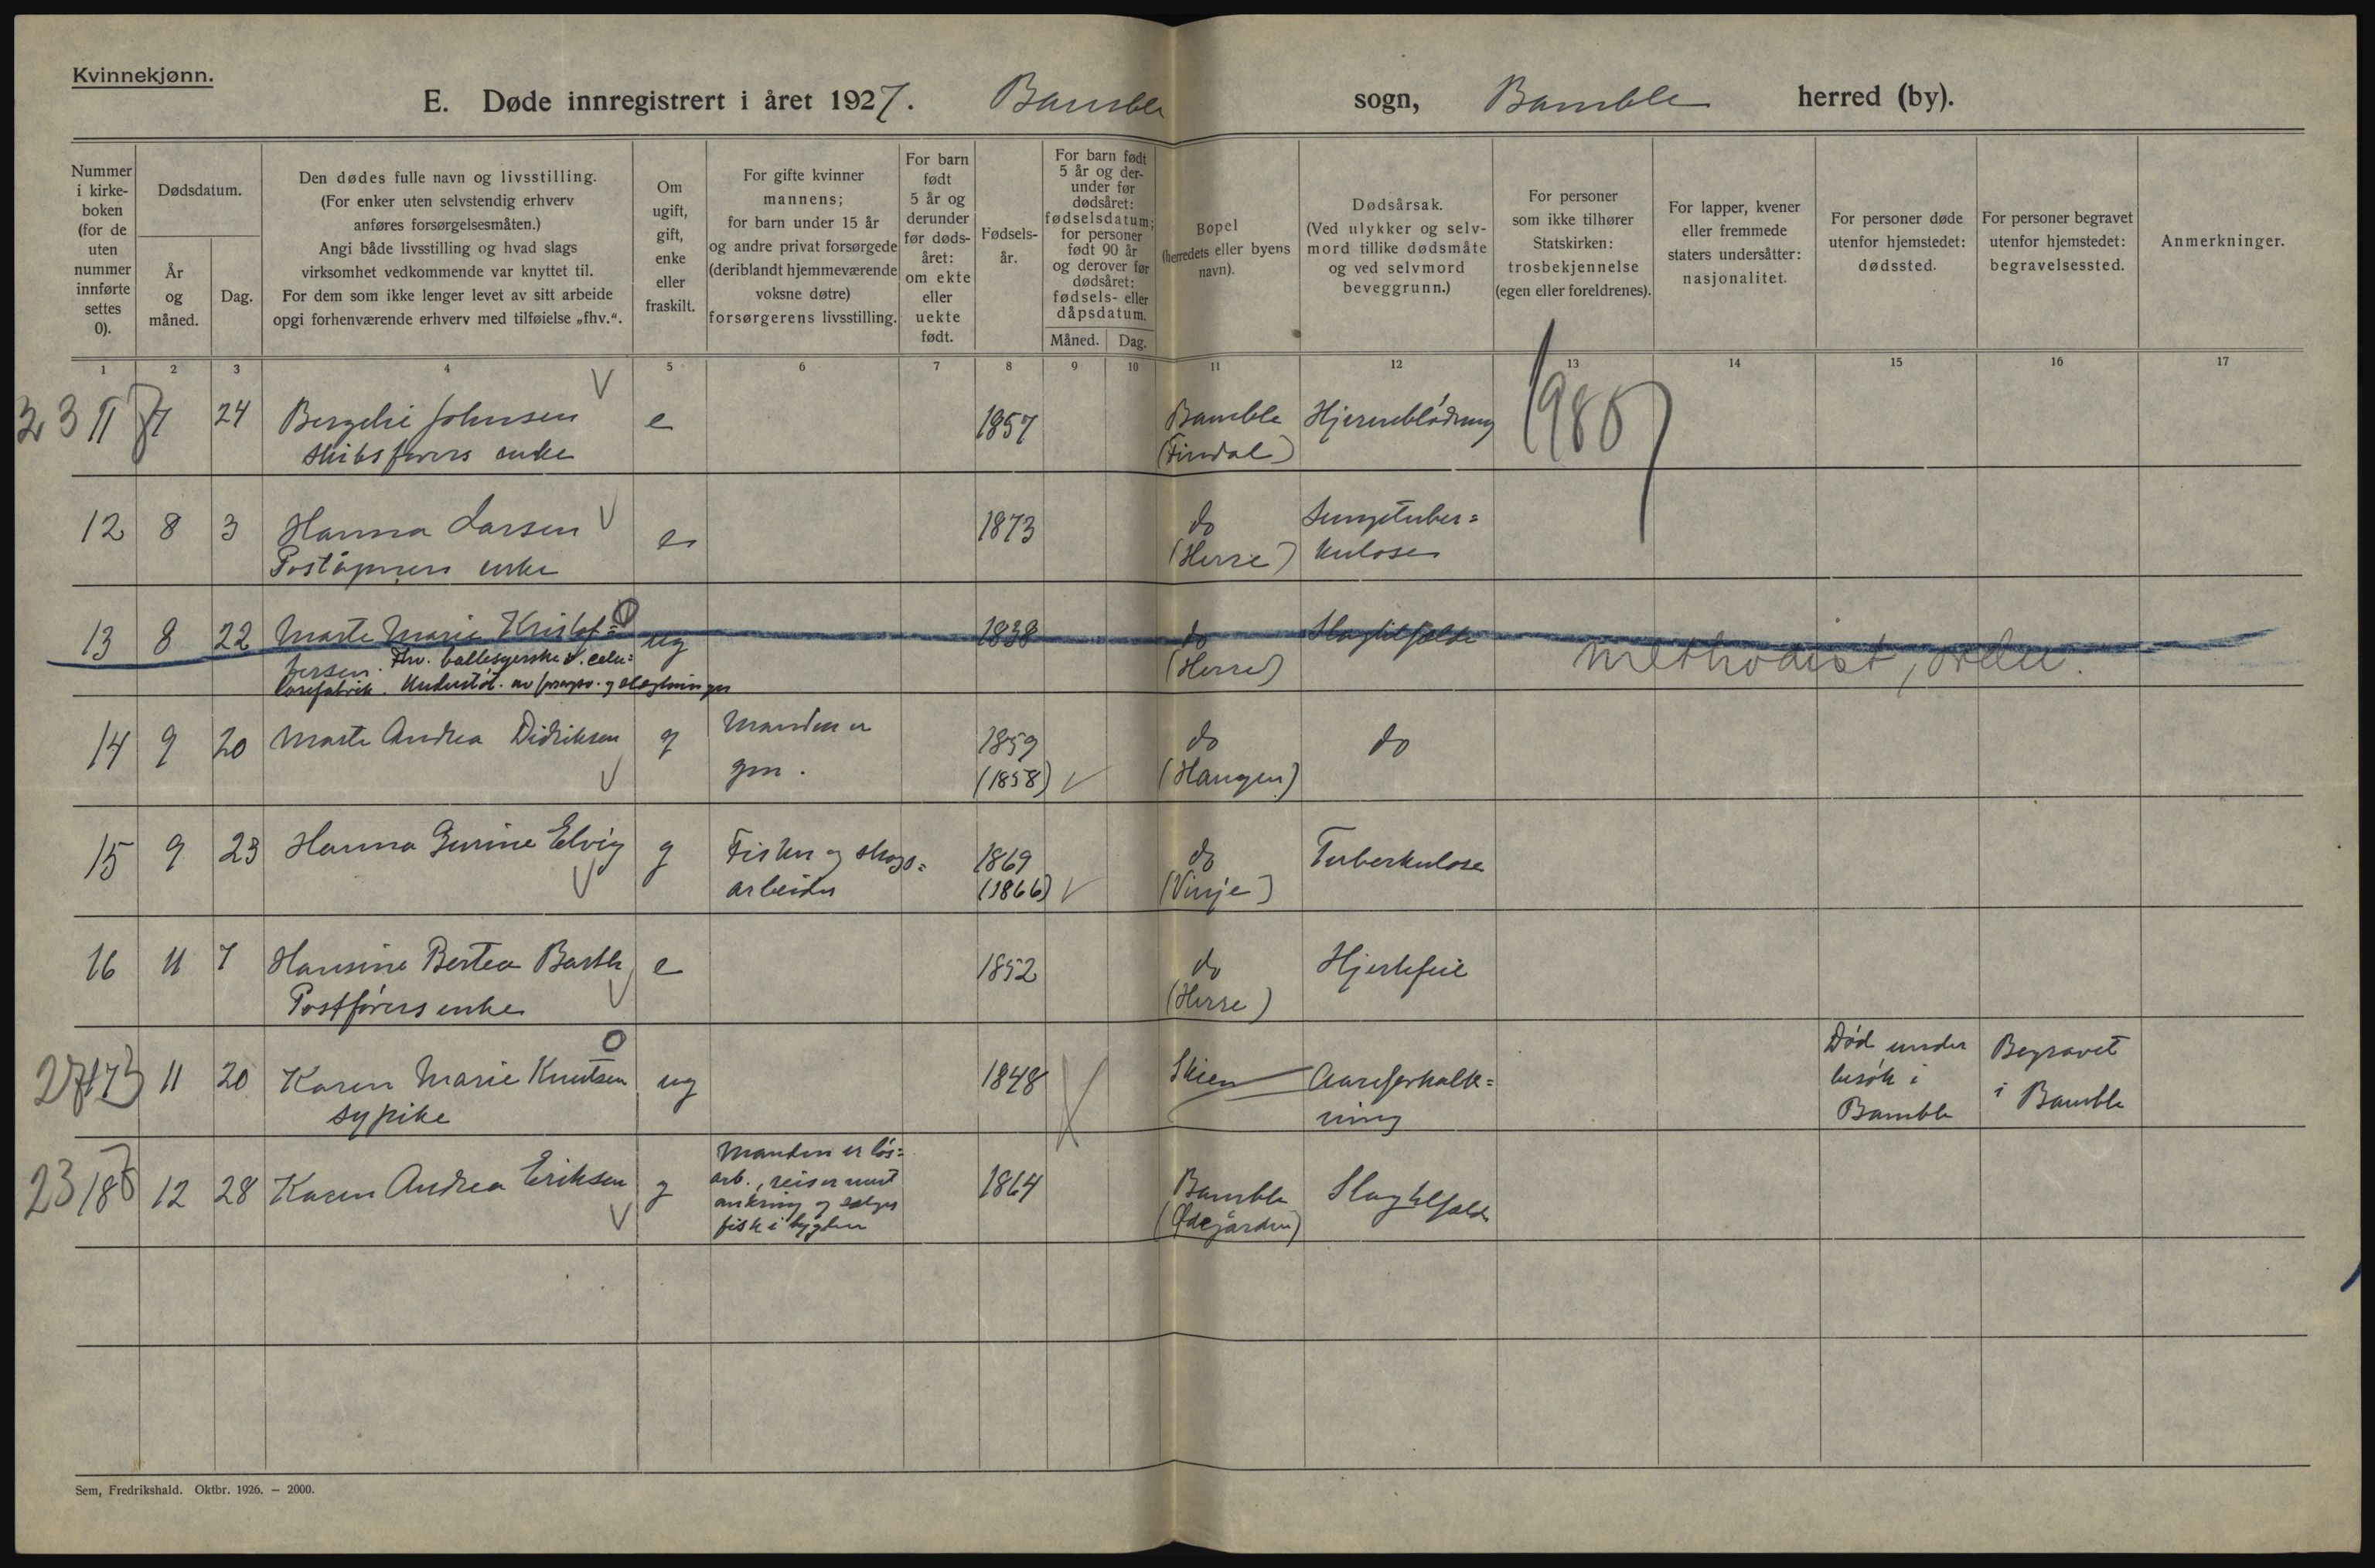 Kvinnekjønn.
E. Døde innregistrert i året 1927. Bamble sogn, Bamble herred (by).
Nummer i kirke-boken (for de uten nummer innførte settes 0).
Dødsdatum.
År og måned.
Dag.
Den dødes fulle navn og livsstilling.
(For enker uten selvstendig erhverv
anføres forsørgelsesmåten.)
Angi både livsstilling og hvad slags
virksomhet vedkommende var knyttet til.
For dem som ikke lenger levet av sitt arbeide
opgi forhenværende erhverv med tilføielse „fhv.“.
Om
ugift,
gift,
enke
eller
fraskilt.
For gifte kvinner
mannens;
for barn under 15 år
og andre privat forsørgede
(deriblandt hjemmeværende
voksne døtre)
forsørgerens livsstilling.
For barn
født
5 år og
derunder
før døds-
året:
om ekte
eller
uekte
født.
Fødsels-
år.
For barn født
5 år og der-
under før
dødsåret:
fødselsdatum;
for personer
født 90 år
og derover før
dødsåret:
fødsels- eller
dåpsdatum.
Måned. Dag.
Bopel
(herredets eller byens
navn).
Dødsårsak.
(Ved ulykker og selv-
mord tillike dødsmåte
og ved selvmord
beveggrunn.)
For personer
som ikke tilhører
Statskirken:
trosbekjennelse
(egen eller foreldrenes).
For lapper, kvener
eller fremmede
staters undersåtter:
nasjonalitet.
For personer døde
utenfor hjemstedet:
dødssted.
For personer begravet
utenfor hjemstedet:
begravelsessted.
Anmerkninger.
1 2 3 4 5 6 7 8 9 10 11 12 13 14 15 16 17
11 7 24 Bergelie Johnsen e 1857 Bamble Hjerneblødning
Skibsførers enke (Findal)
12 8 3 Hanna Larsen e 1873 do Lungetuber=
Poståpners enke (Herre) kulose
13 8 22 Marte Marie Kristof= ug 1838 do Slagtilfælde
fersen. Fhv. ballesyerske v. celu= (Herre) methodist,
losefabrik. Understøt. av forsorgsv. og slægtninger
14 9 20 Marte Andrea Didriksen g Manden er 1859 do do
grm. (1858) (Haugen)
15 9 23 Hanna Gurine Elvig g Fisker og skogs= 1869 do Tuberkulose
arbeider (1866) (Vinje)
16 11 7 Hansine Bertea Barth e 1852 do Hjertefeil
Postførers enke (Herre)
17 11 20 Karen Marie Knutsen ug 1848 Skien Aareforkalk= Død under Begravet
sypike ning besøk i i Bamble
Bamble
18 12 28 Karen Andrea Eriksen g Manden er løs= 1864 Bamble Slagtilfælde
arb., reiser mest (Ødegården)
omkring og sælger
fisk i bygden
Sem, Fredrikshald. Oktbr. 1926. — 2000.